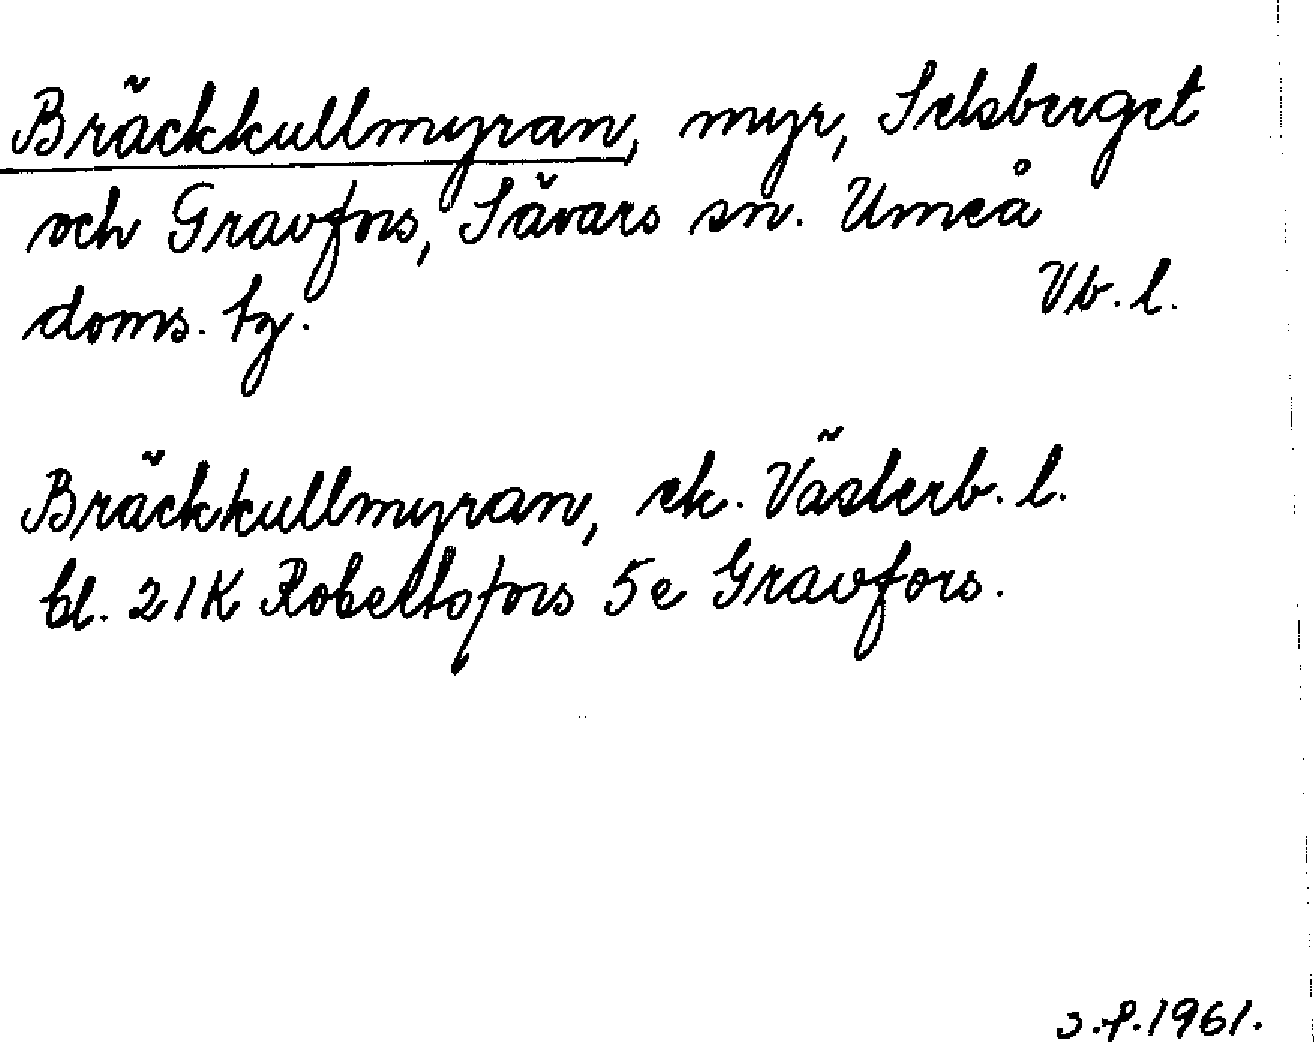 Bräckkullmyran, myr, Selsberget
och Gravfors, Sävars sn. Umeå
doms. tg. Vb. l.
Bräckkullmyran, ek. Västerb. l.
bl. 21K Robertsfors 5e Gravfors.
s.f. 1961.